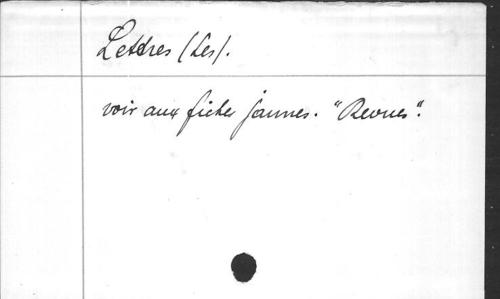 Lettres (Les).
voir aux fiches jaunes. "Revues".